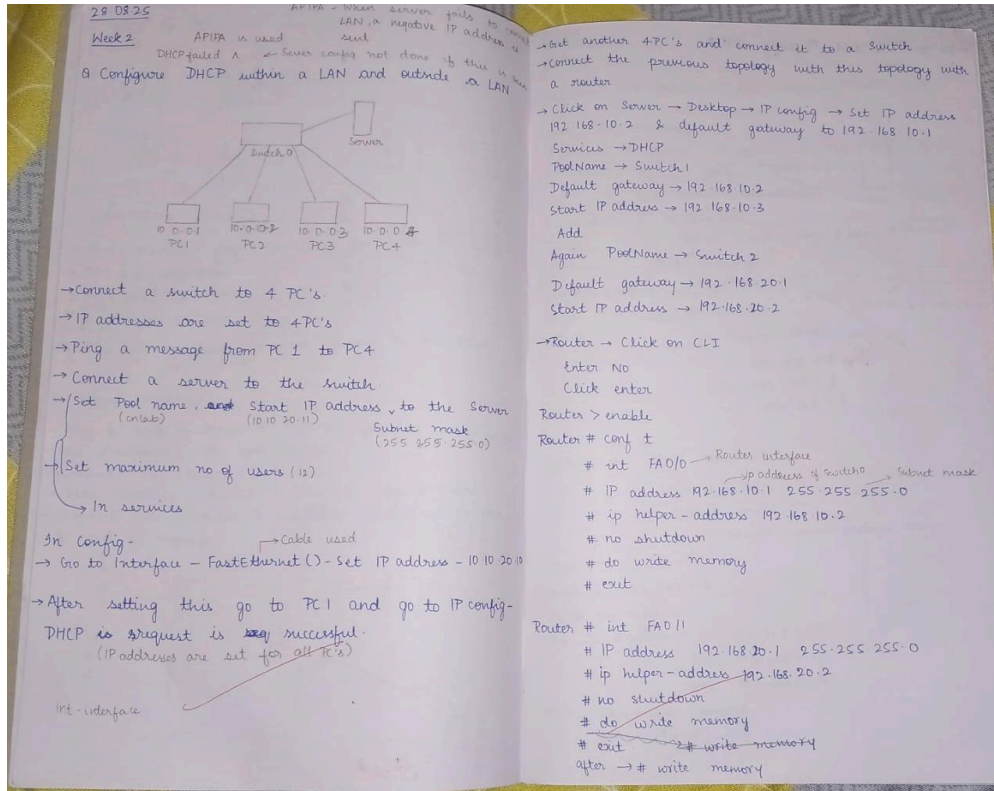 28 08.25
APIPA - When server fails to connect
LAN, a negative IP address is
sent
Week 2
APIPA is used
DHCP failed ∧ ← Sever config not done if this is
Q Configure DHCP within a LAN and outside a LAN
Switch 0
Server
10.0.0.1
10.0.10.2
10.0.0.3
10.0.0.4
PC1
PC2
PC3
PC4
→ Connect a switch to 4 PC's.
→ IP addresses are set to 4PC's
→ Ping a message from PC 1 to PC4
→ Connect a server to the switch.
→ Set Pool name, Start IP address, to the Server
(cnlab) (10.10 20.11) Subnet mask
(255 255.255.0)
→ Set maximum no of users (12)
→ In services
In config-
→ Cable used
→ Go to Interface - FastEthernet () - Set IP address - 10 10 20 10
→ After setting this go to PC1 and go to IP config-
DHCP is request is successful.
(IP addresses are set for all PC's)
int - interface
→ Get another 4PC's and connect it to a Switch
→ Connect the previous topology with this topology with
a router
→ Click on Server → Desktop → IP config → Set IP address
192 168.10.2 & default gateway to 192.168 10.1
Services → DHCP
PoolName → Switch 1
Default gateway → 192.168 10.2
Start IP address → 192.168.10.3
Add
Again PoolName → Switch 2
Default gateway → 192.168 20.1
Start IP address → 192.168.20.2
→ Router → Click on CLI
Enter NO
Click enter
Router > enable
Router # conf t
# int FA0/0 → Router interface
→ ip address of switch0 → Subnet mask
# IP address 192.168.10.1 255.255 255.0
# ip helper-address 192.168 10.2
# no shutdown
# do write memory
# exit
Router # int FA0/1
# IP address 192.168 20.1 255.255 255.0
# ip helper-addres 192.168.20.2
# no shutdown
# do write memory
# exit # write memory
after → # write memory